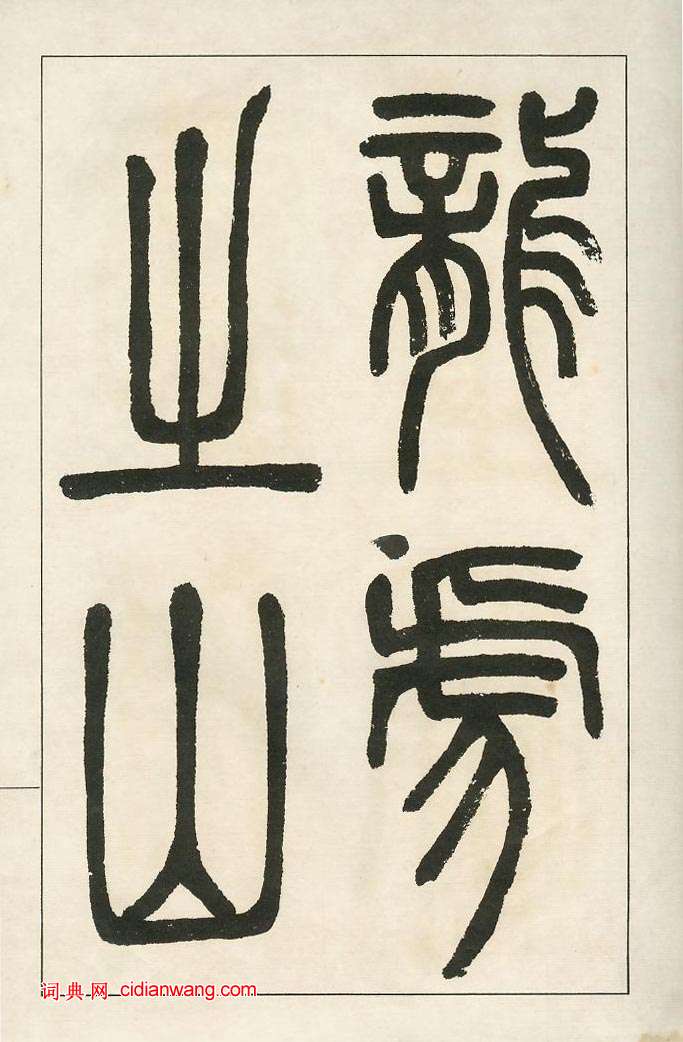 龍虎
之山
词典网 cidianwang.com